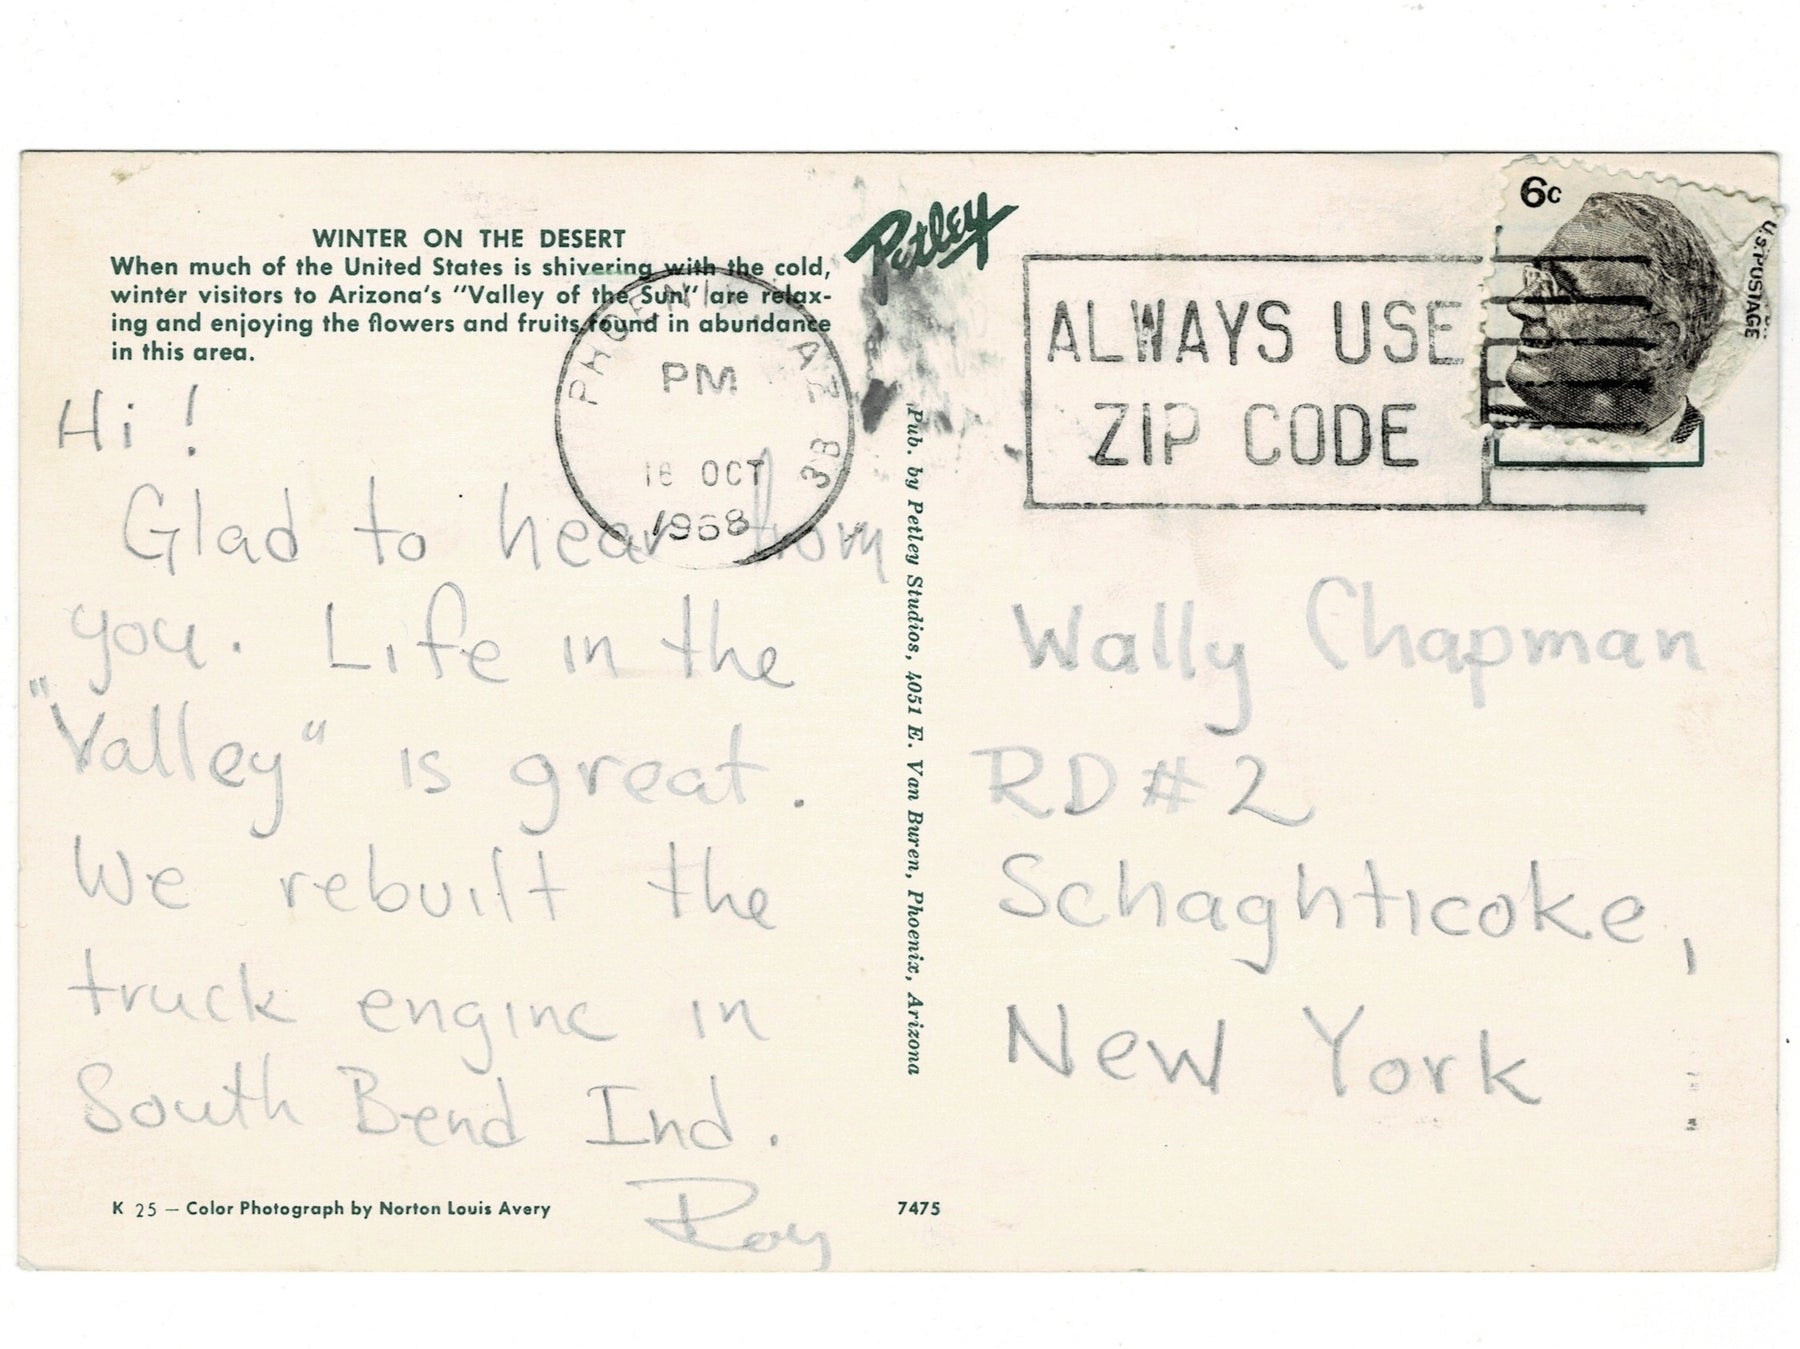 WINTER ON THE DESERT
When much of the United States is shivering with the cold,
winter visitors to Arizona's "Valley of the Sun" are relax-
ing and enjoying the flowers and fruits found in abundance
in this area.
Hi!
Glad to hear from
you. Life in the
"Valley" is great.
We rebuilt the
truck engine in
South Bend Ind.
Roy
K 25 — Color Photograph by Norton Louis Avery
PHOENIX, AZ
PM
OCT
1968
Petley
Pub. by Petley Studios, 4051 E. Van Buren, Phoenix, Arizona
7475
ALWAYS USE
ZIP CODE
6c
U.S. POSTAGE
Wally Chapman
RD #2
Schaghticoke,
New York